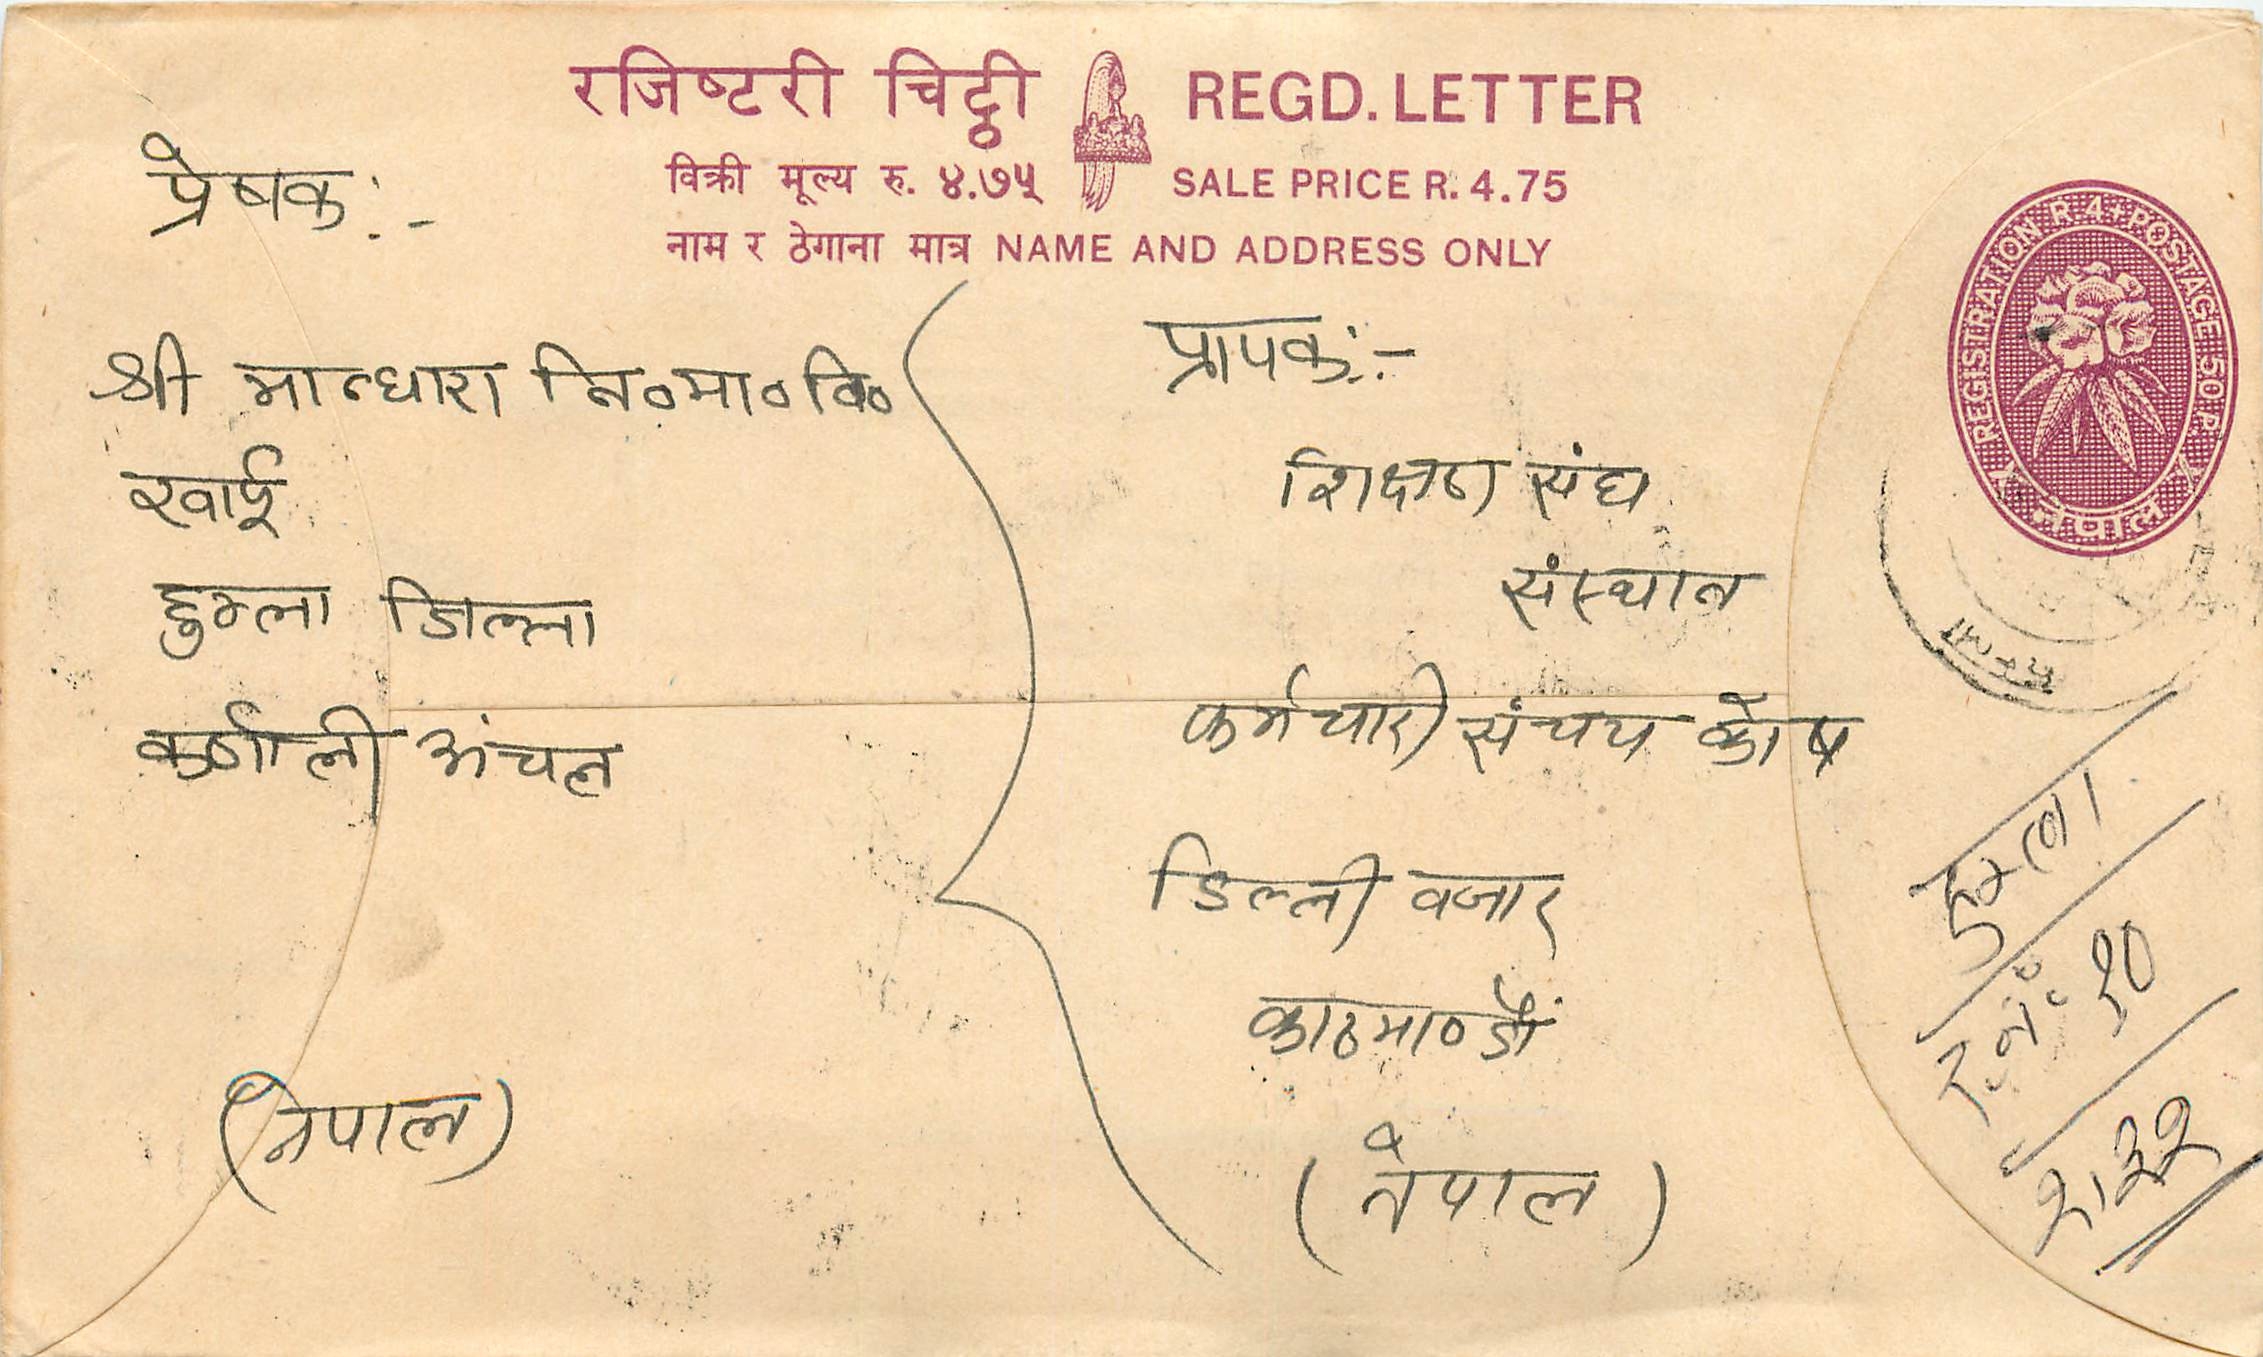 रजिष्टरी चिट्ठी REGD. LETTER
विक्री मूल्य रु. ४.७५ SALE PRICE R. 4.75
नाम र ठेगाना मात्र NAME AND ADDRESS ONLY
REGISTRATION R. 4+POSTAGE 50 P.
नेपाल
प्रेषक:-
श्री मान्धारा नि०मा०वि०
खार्पू
हुम्ला जिल्ला
कर्णाली अंचल
(नेपाल)
प्रापक:-
शिक्षण संघ
संस्थान
कर्मचारी संचय कोष
डिल्ली वजार
काठमाण्डौं
(नेपाल)
हुम्ला
हुम्ला
र.नं. १०